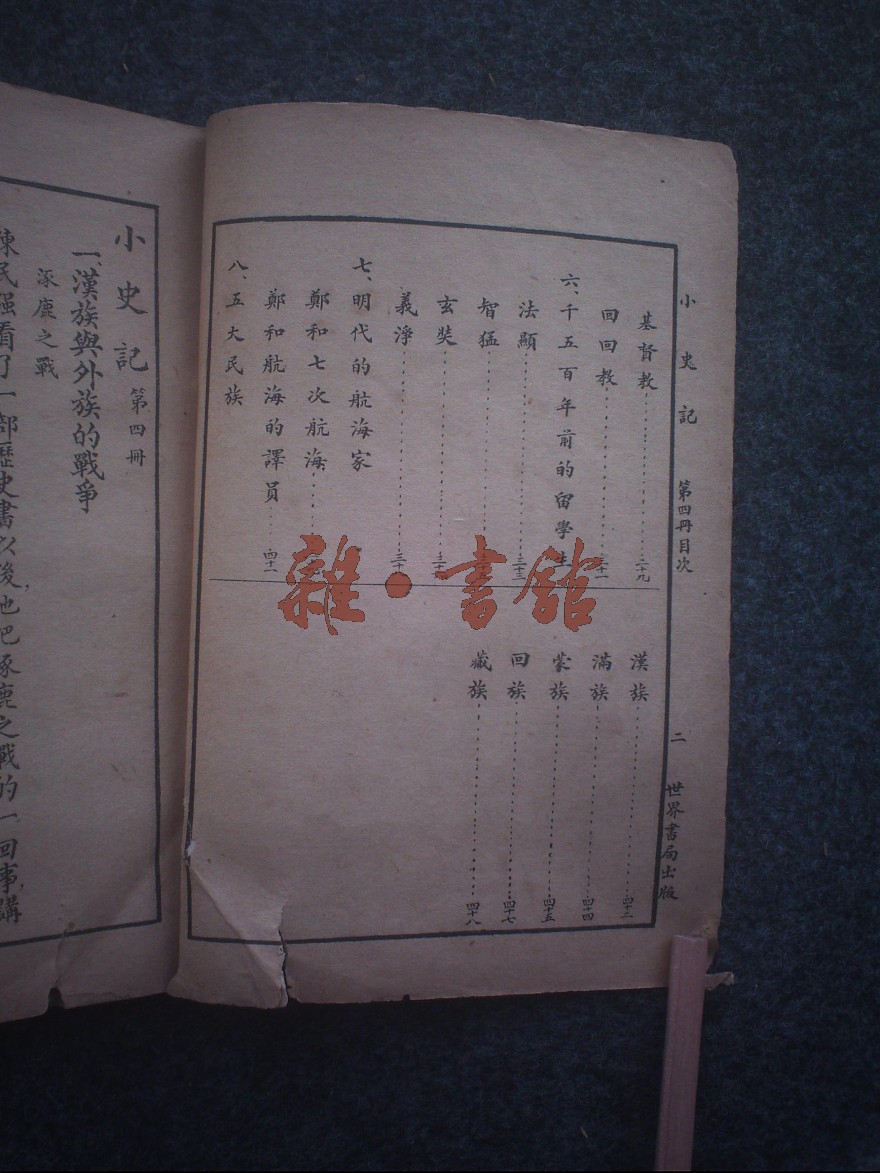 小史記 第四冊目次 二 世界書局出版
基督教 二十九
回回教
六、千五百年前的留學生
法顯 三十三
智猛
玄奘
義淨
七、明代的航海家
鄭和七次航海
鄭和航海的譯員 四十一
八、五大民族
漢族 四十三
滿族 四十四
蒙族 四十五
回族 四十七
藏族 四十八
小史記 第四冊
一、漢族與外族的戰爭
涿鹿之戰
陳民强看了一部歷史書以後，他把涿鹿之戰的一回事，講
雜·書館